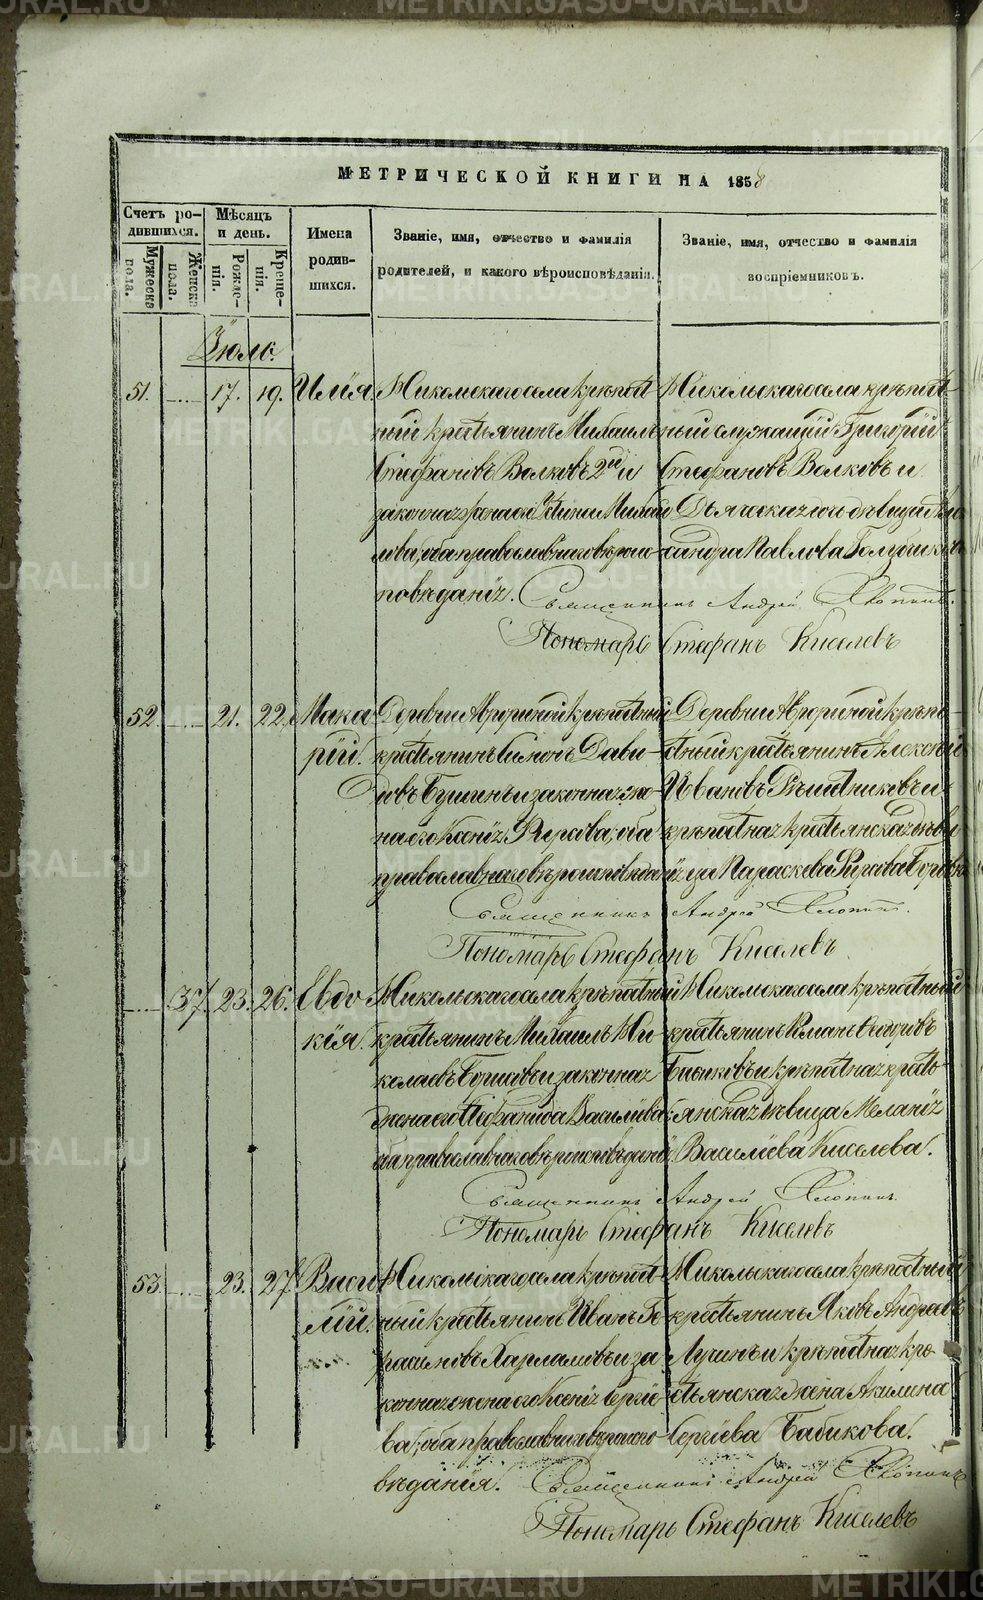 МЕТРИЧЕСКОЙ КНИГИ НА 1858
Счетъ ро-
дившихся.
Мѣсяцъ
и день.
Имена
родив-
шихся.
Званіе, имя, отчество и фамилія
родителей, и какого вѣроисповѣданія.
Званіе, имя, отчество и фамилія
воспріемниковъ.
Мужеска
пола.
Женска
пола.
Рожде-
нія.
Креще-
нія.
Іюль.
51. 17. 19. Илія. Никольскаго села крѣпост-
ный крестьянинъ Михаилъ
Стефановъ Волковъ 2й и
законная жена его
лова, оба православнаго вѣроис-
повѣданія.
Никольскаго села крѣпост-
ный служащій Григорій
Стефановъ Волковъ и
дѣвица
сандра Павлова
Священникъ Андрей Хлопинъ.
Пономарь Стефанъ Киселевъ
52. 21. 22. Мака
рій.
Деревни крѣпостный
крестьянинъ Симонъ Дави-
довъ Бушинъ и законная же-
на его Ксенія оба
православнаго вѣроисповѣданія
Деревни крѣпо-
стный крестьянинъ Алексѣй
Ивановъ Рѣшетниковъ и
крѣпостная крестьянская дѣви
ца Параскева
Священникъ Андрей Хлопинъ.
Пономарь Стефанъ Киселевъ
37. 23. 26. Евдо
кія.
Никольскаго села крѣпостный
крестьянинъ Михаилъ Ни-
колаевъ и законная
жена его Стефанида Васильева
оба православнаго вѣроисповѣданія.
Никольскаго села крѣпостный
крестьянинъ
Бабиковъ и крѣпостная кресть-
янская дѣвица Меланія
Василіева Киселева.
Священникъ Андрей Хлопинъ
Пономарь Стефанъ Киселевъ
53. 23. 27. Васи
лій.
Никольскаго села крѣпост-
ный крестьянинъ Иванъ Ге-
расимовъ Харламовъ и за-
конная жена его Ксенія Сергіе-
ва, оба православнаго вѣроиспо-
вѣданія.
Никольскаго села крѣпостный
крестьянинъ Яковъ Андреевъ
Лушинъ и крѣпостная кре-
стьянская жена Акилина
Сергіева Бабикова.
Священникъ Андрей Хлопинъ
Пономарь Стефанъ Киселевъ
METRIKI.GASO-URAL.RU